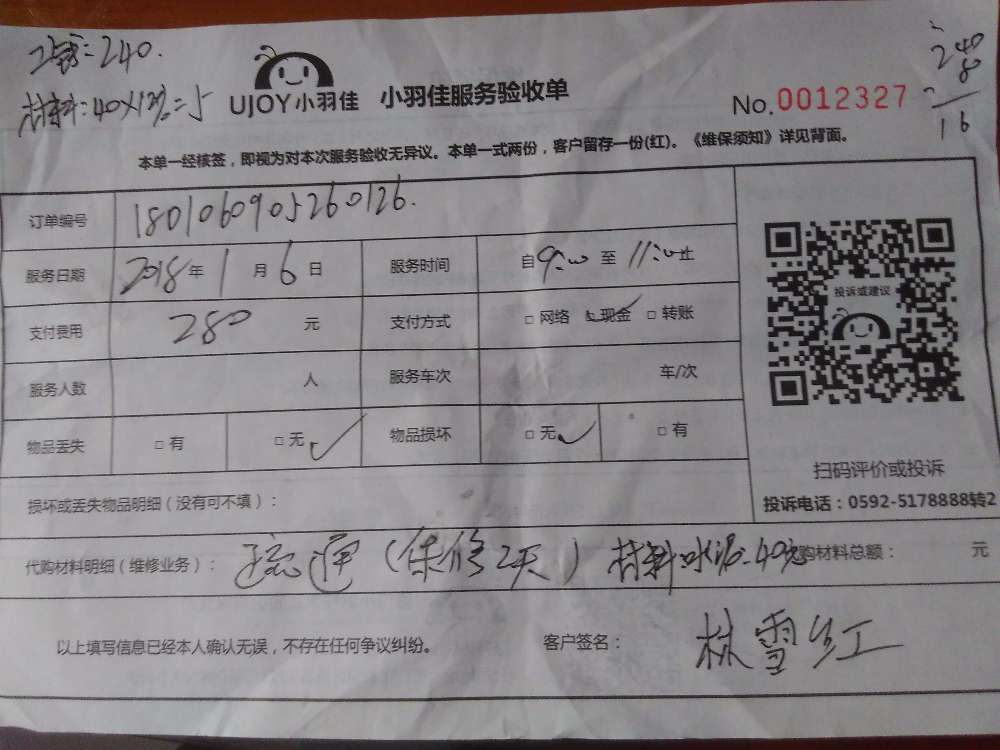 工钱:240.
材料:40×12%=5
240
8
16
UJOY小羽佳 小羽佳服务验收单
No.0012327
本单一经核签，即视为对本次服务验收无异议。本单一式两份，客户留存一份(红)。《维保须知》详见背面。
订单编号 1801060905260126.
服务日期 2018年1月6日 服务时间 自9:00至11:00止
支付费用 280 元 支付方式 □网络 □现金 □转账
投诉或建议
服务人数 人 服务车次 车/次
物品丢失 □有 □无 物品损坏 □无 □有
扫码评价或投诉
损坏或丢失物品明细（没有可不填）：
投诉电话：0592-5178888转2
代购材料明细（维修业务）： 疏通(保修2天) 材料水泥-40元 购材料总额： 元
以上填写信息已经本人确认无误，不存在任何争议纠纷。 客户签名： 林雪红